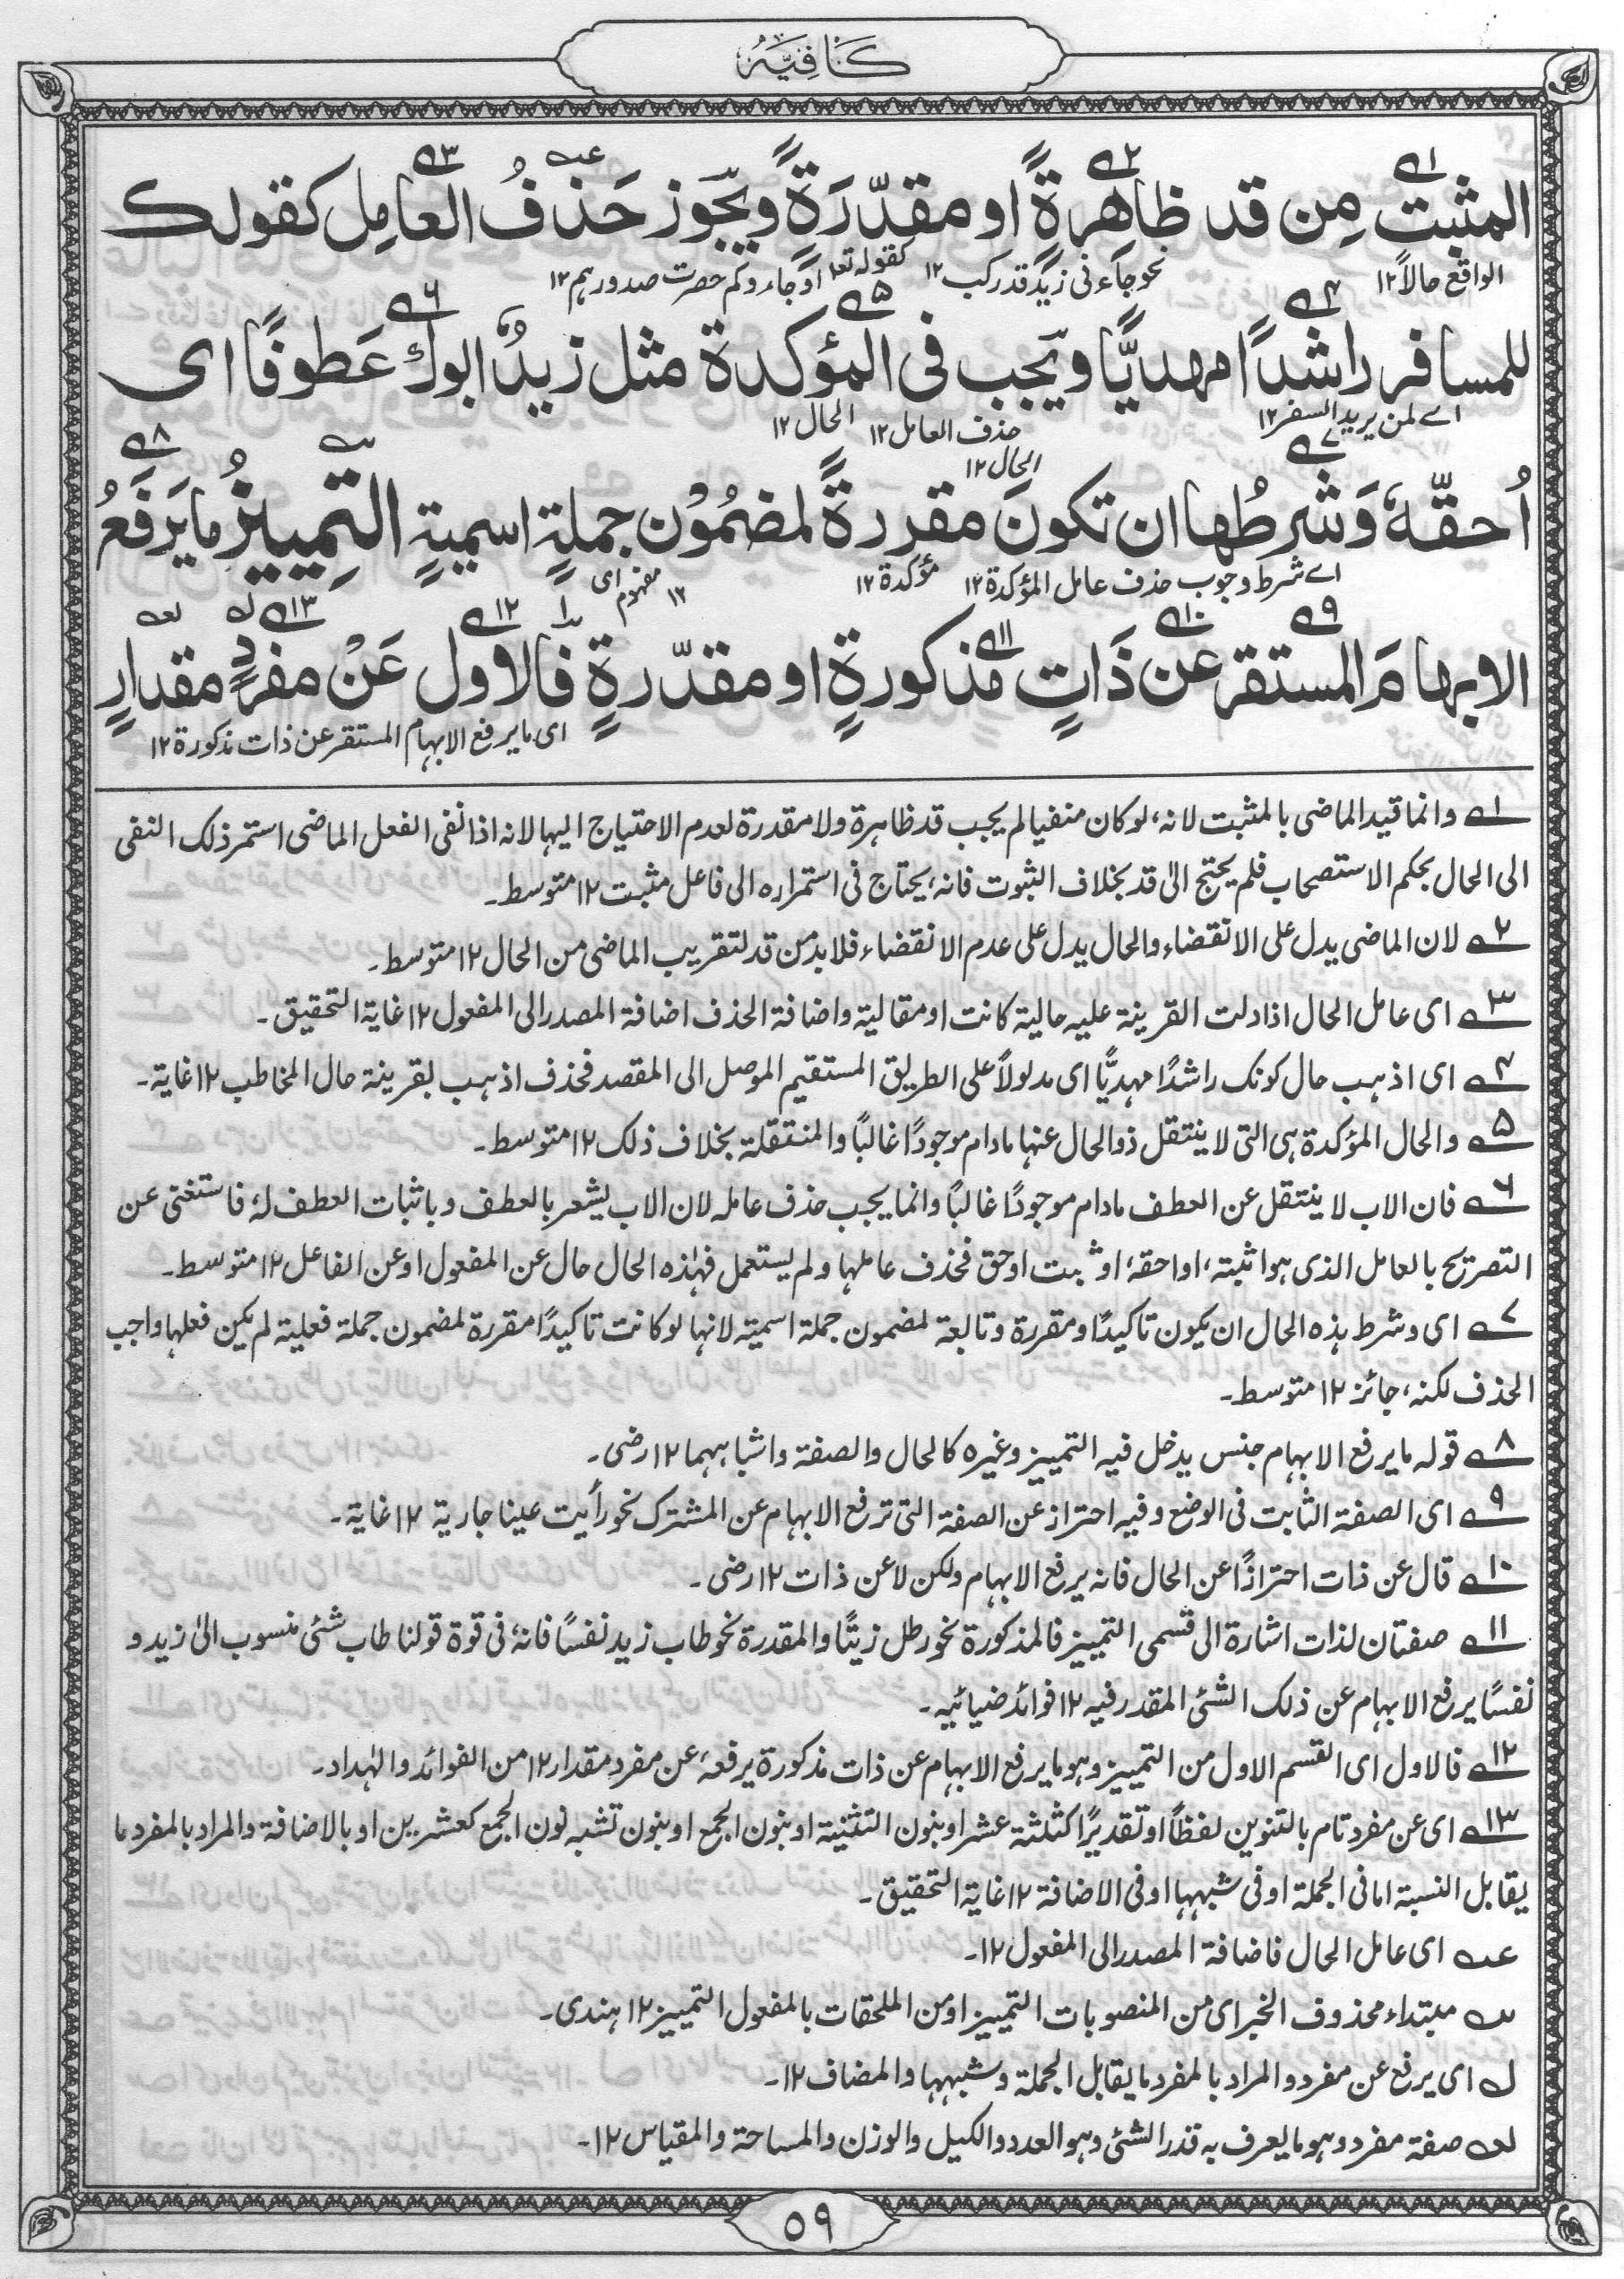 كَافِيَه
المثبت مِن قد ظاهرةً او مقدّرَةً ويجّوز حَذفُ العامِل كقولك
الواقع حالاً ١٢ نحو جاءنی زيد قد ركب ١٢ كقوله تعا او جاءوكم حصرت صدورهم ١٢
للمسافر راشداً مهديًّا ويجب فى المؤكدة مثل زيدٌ ابوك عَطوفًا اى
اے لمن يريد السفر ١٢ حذف العامل ١٢ الحال ١٢
الحال ١٢
اُحقّهٗ وَشرطُها ان تكونَ مقررةً لمضمُوْن جملةٍ اسميةٍ التِّمييزُ مايَرفَعُ
اے شرط وجوب حذف عامل المؤكدة ١٢ مؤكدة ١٢ اى مفهوم ١٢
الابهامَ المستقر عن ذَاتٍ مذكورةٍ او مقدّرةٍ فالاول عَنْ مفردٍ مقدارٍ
اى مايرفع الابہام المستقر عن ذات مذكورة ١٢
١ وانما قيد الماضى بالمثبت لانہ لو كان منفيا لم يجب قد ظاہرة ولا مقدرة لعدم الاحتياج اليها لانہ اذا نفى الفعل الماضى استمر ذلك النفى
الى الحال بحكم الاستصحاب فلم يحتج الىٰ قد بخلاف الثبوت فانہ يحتاج فى استمراره الى فاعل مثبت ١٢ متوسط۔
٢ لان الماضى يدل على الانقضاء والحال يدل على عدم الانقضاء فلابد من قد لتقريب الماضى من الحال ١٢ متوسط۔
٣ اى عامل الحال اذا دلت القرينة عليہ حالية كانت او مقالية واضافة الحذف اضافة المصدر الى المفعول ١٢ غاية التحقيق۔
٤ اى اذہب حال كونك راشدًا مهديًّا اى مدلولاً على الطريق المستقيم الموصل الى المقصد فحذف اذہب بقرينة حال المخاطب ١٢ غاية۔
٥ والحال المؤكدة ہى التى لا ينتقل ذوالحال عنہا مادام موجودًا غالبًا والمنتقلة بخلاف ذلك ١٢ متوسط۔
٦ فان الاب لا ينتقل عن العطف مادام موجودًا غالبًا وانما يجب حذف عاملہ لان الاب يشعر بالعطف وباثبات العطف لہ فاستغنى عن
التصريح بالعامل الذى ہو اثبتہ او احقہ او ثبت او حق فحذف عاملہا ولم يستعمل فہٰذہ الحال حال عن المفعول او عن الفاعل ١٢ متوسط۔
٧ اى وشرط ہذہ الحال ان يكون تاكيدًا ومقررة وتابعة لمضمون جملة اسمية لانہا لو كانت تاكيدًا مقررة لمضمون جملة فعلية لم يكن فعلہا واجب
الحذف لكنہ جائز ١٢ متوسط۔
٨ قولہ مايرفع الابہام جنس يدخل فيہ التمييز وغيرہ كالحال والصفة واشباہہما ١٢ رضى۔
٩ اى الصفة الثابت فى الوضع وفيہ احتراز عن الصفة التى ترفع الابہام عن المشترك نحو رأيت عينا جارية ١٢ غاية۔
١٠ قال عن ذات احترازًا عن الحال فانہ يرفع الابہام ولكن لا عن ذات ١٢ رضى۔
١١ صفتان لذات اشارة الى قسمى التمييز فالمذكورة نحو رطل زيتًا والمقدرة نحو طاب زيد نفسًا فانہ فى قوة قولنا طاب شئى منسوب الىٰ زيد و
نفسًا يرفع الابہام عن ذلك الشئى المقدر فيہ ١٢ فوائد ضيائيہ۔
١٢ فالاول اى القسم الاول من التمييز وہو مايرفع الابہام عن ذات مذكورة يرفعہ عن مفرد مقدار ١٢ من الفوائد والہداد۔
١٣ اى عن مفرد تام بالتنوين لفظاً او تقديرًا كثلثة عشر او بنون التثنية او بنون الجمع او بنون تشبہ نون الجمع كعشرين او بالاضافة والمراد بالمفرد ما
يقابل النسبة اما فى الجملة او فى شبہہا او فى الاضافة ١٢ غاية التحقيق۔
عہ اى عامل الحال فاضافة المصدر الى المفعول ١٢۔
مبتداء محذوف الخبر اى من المنصوبات التمييز او من الملحقات بالمفعول التمييز ١٢ ہندى۔
لہ اى يرفع عن مفرد والمراد بالمفرد ما يقابل الجملة وشبہہا والمضاف ١٢۔
لعہ صفة مفرد وہو ما يعرف بہ قدر الشئى وہو العدد والكيل والوزن والمساحة والمقياس ١٢۔
٥٩